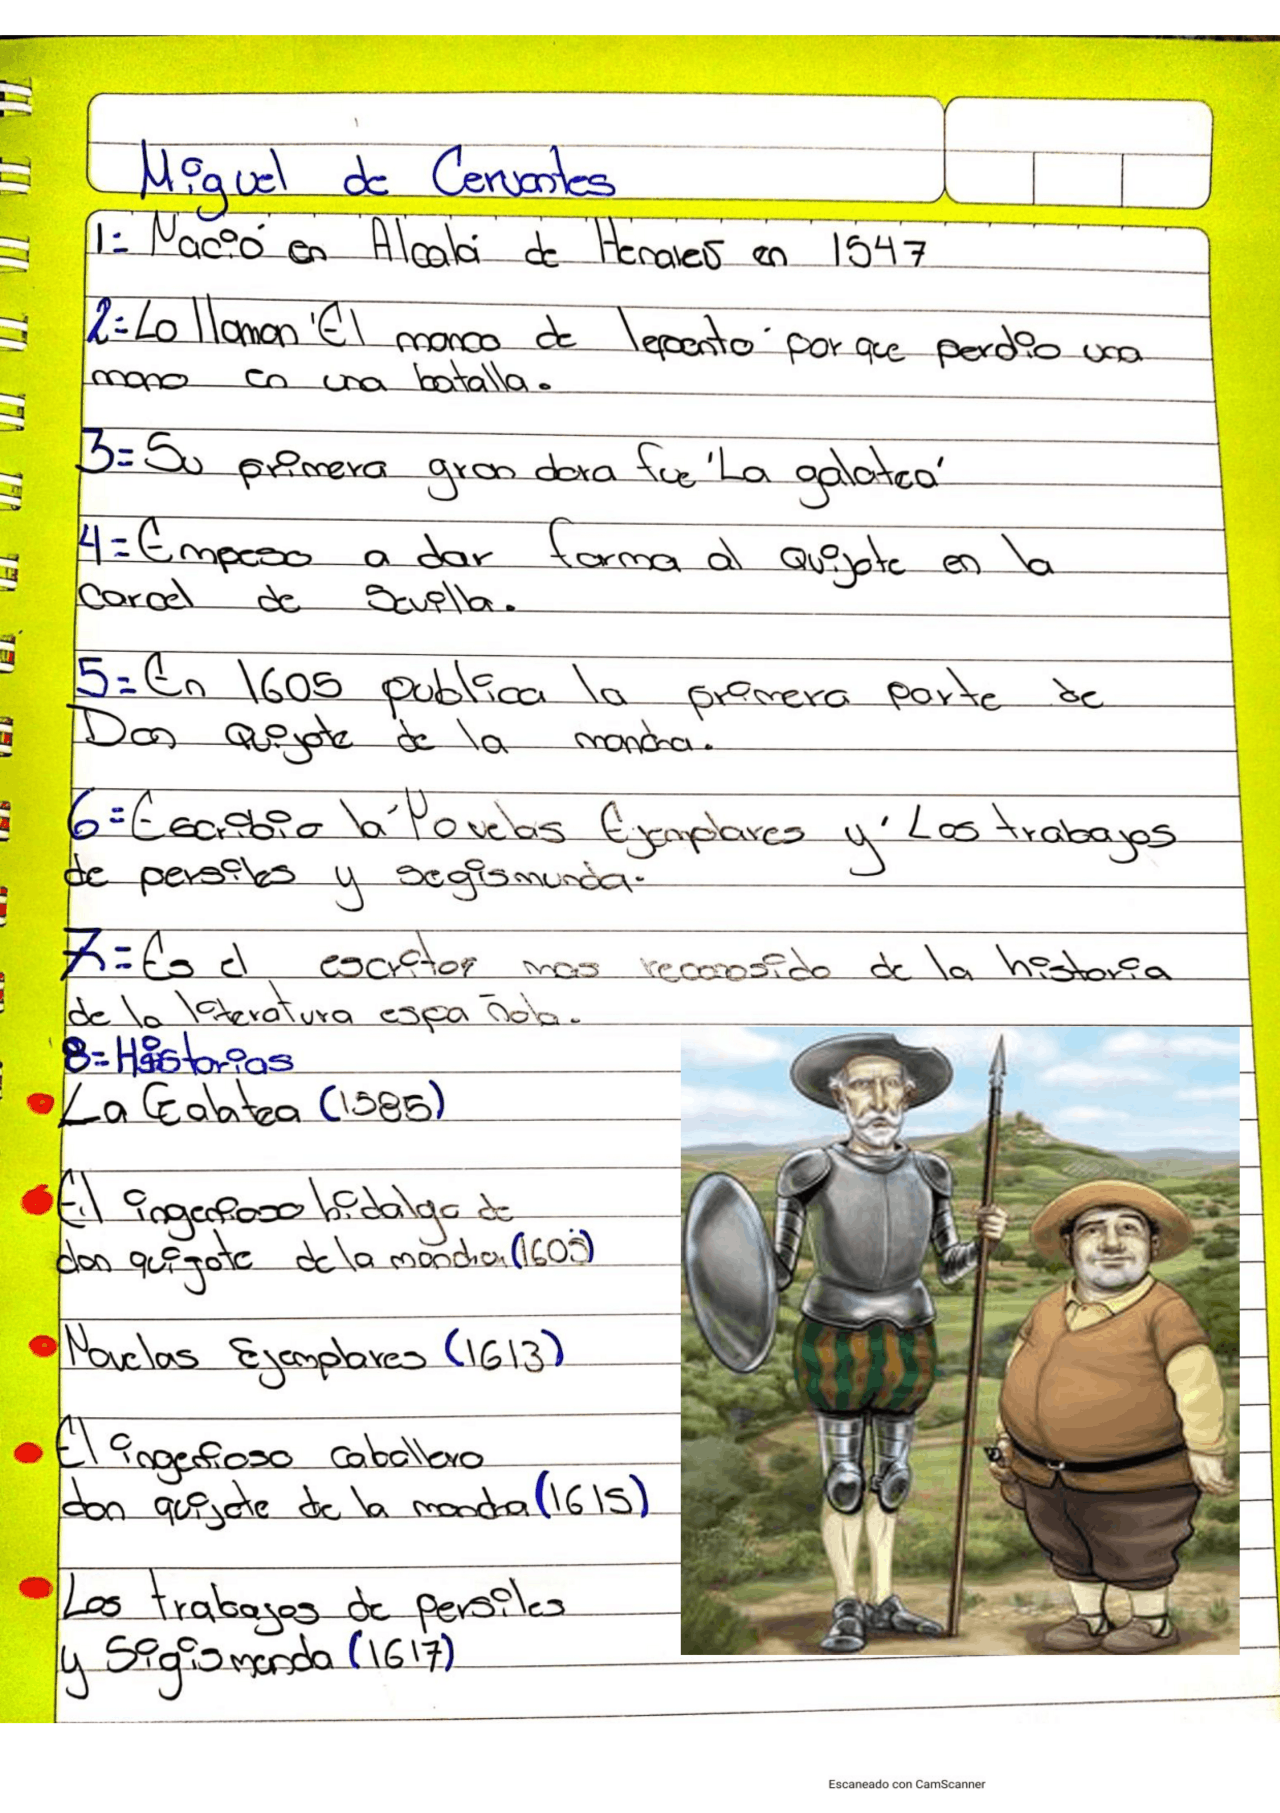 Miguel de Cervantes
1= Nació en Alcalá de Henares en 1547
2= Lo llaman 'El manco de lepanto' por que perdio una
mano en una batalla.
3= Su primera gran dora fue 'La galatea'
4= Empeso a dar forma al Quijote en la
carcel de Sevilla.
5= En 1605 publica la primera parte de
Don quijote de la mancha.
6= Escribio la 'Novelas Ejemplares y' Los trabajos
de persiles y segismunda.
7= Es el escritor mas reconosido de la historia
de la literatura espa ñola.
8= Historias
La Galatea (1585)
El ingenioso hidalgo de
don quijote de la mancha (1605)
Novelas Ejemplares (1613)
El ingenioso caballero
don quijote de la mancha (1615)
Los trabajos de persiles
y Sigismanda (1617)
Escaneado con CamScanner